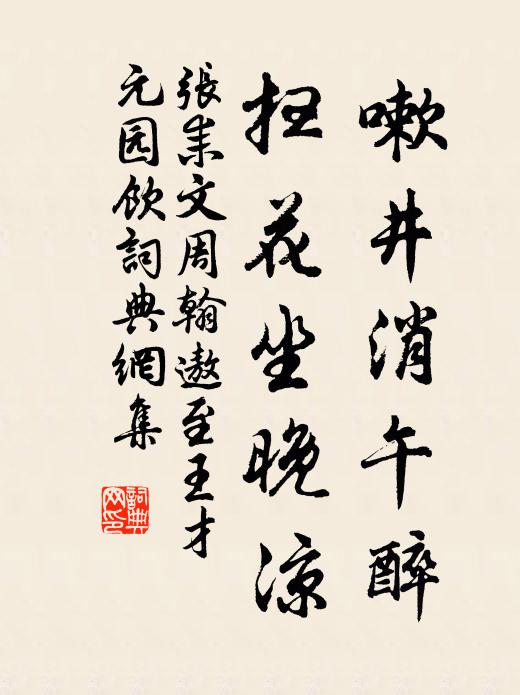 嗽井消午醉
扫花坐晚凉
張耒文周翰遨至王才
元园飲詞典網集
詞典
网印